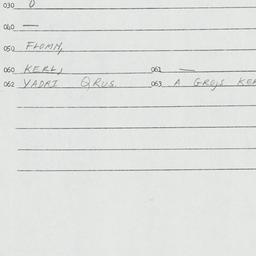 030 0
040 —
050 FLOMM,
060 KERL, 061 —
062 YADRI QRUS. 063 A GROJS